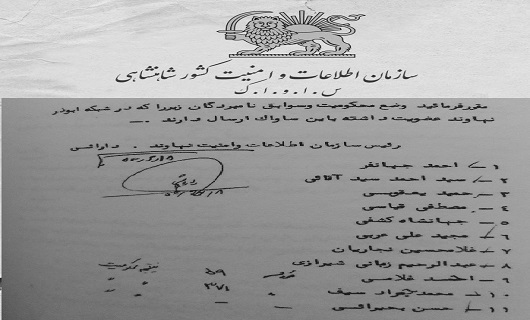 سازمان اطلاعات و امنیت کشور شاهنشاهی
س . ا . و . ا . ک
مقرر فرمائید وضع محکومیت وسوابق نامبردگان زیررا که در شبکه ابوذر
نهاوند عضویت داشته باین ساواک ارسال دارند . —
رئیس سازمان اطلاعات وامنیت نهاوند . دارائی
۱ — احمد جهانفر
۲ — سید احمد سید آقائی
۳ — حمید یعقوبی
۴ — مصطفی قیاسی
۵ — جهانشاه کشفی
۶ — مجید علی عربی
۷ — غلامحسین نجاریان
۸ — عبدالرحیم زمانی شیرازی
۹ — احمد غلامی ۵۹
۱۰ — محمد جواد سیف ۳۷۱
۱۱ — حسن بحیرائی